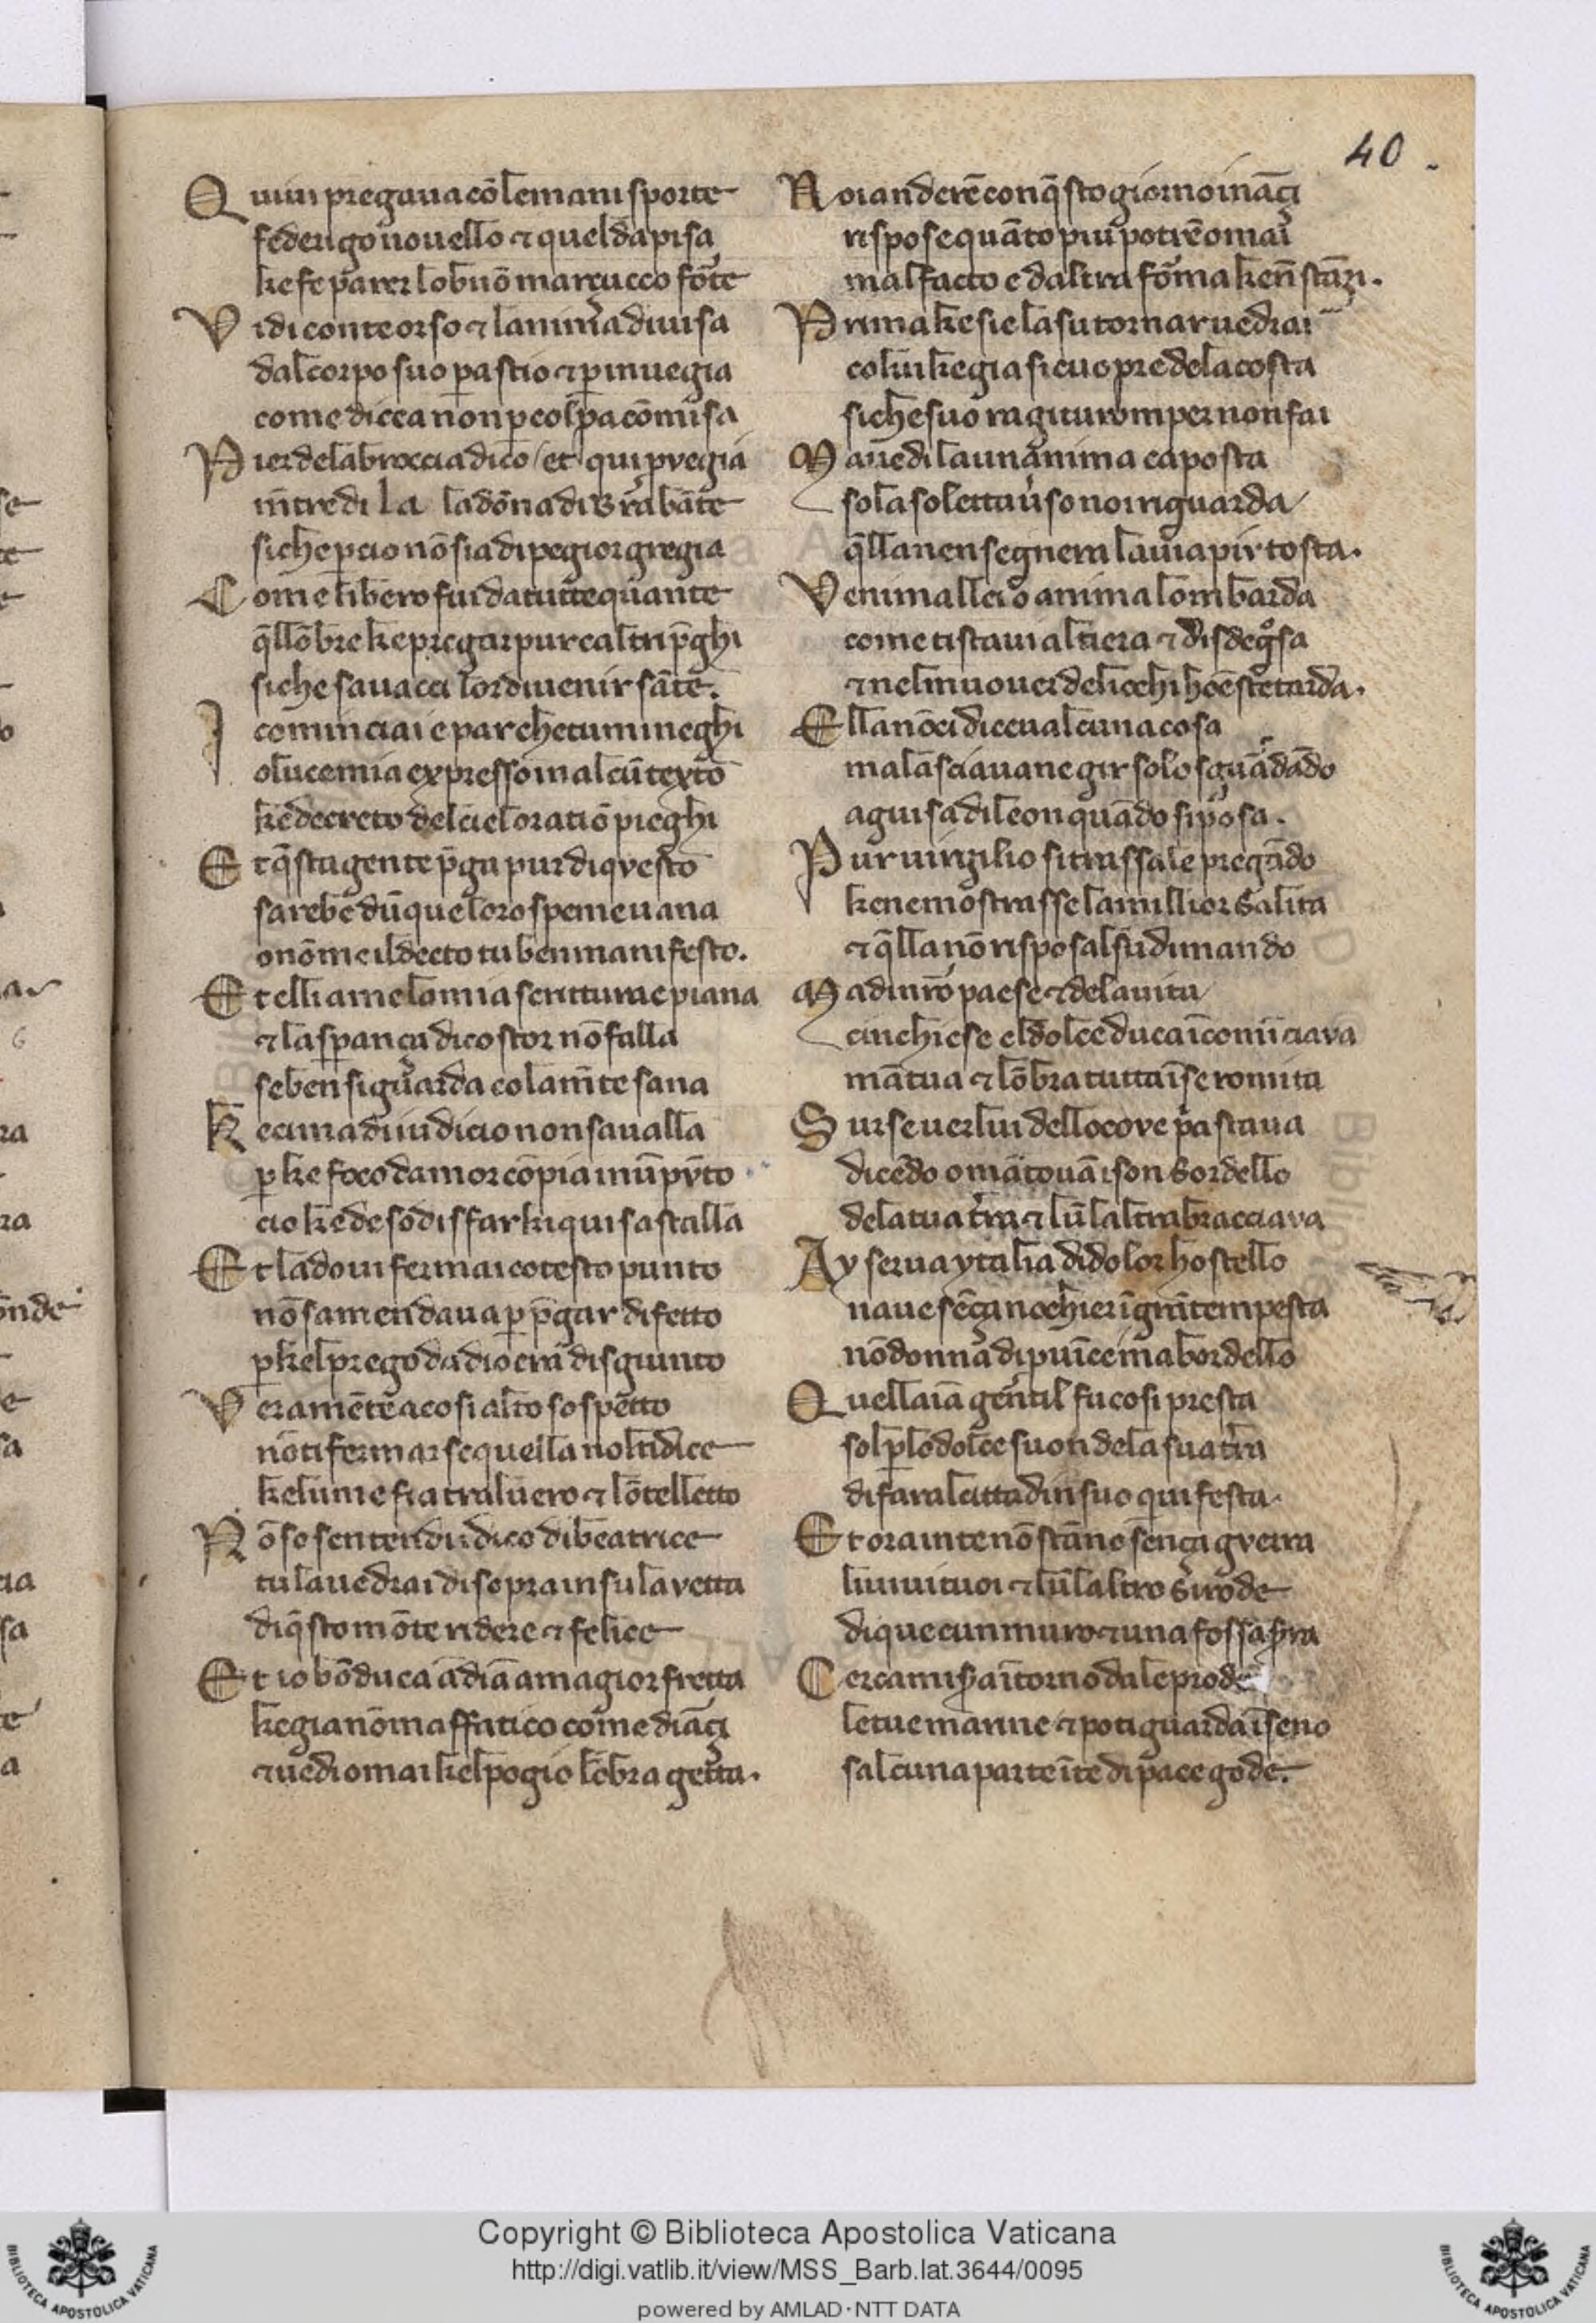 40.
Quiui pregaua cō le mani sporte
federigo nouello ⁊ quel da pisa
ke fe parer lo buō marçucco forte
Vidi conte orso ⁊ lanima diuisa
dal corpo suo p astio ⁊ p inuegia
come dicea non p colpa cōmisa
Pier dela broccia dico / et qui pvegia
mētre di la la dōna di brabāte
siche pcio nō sia di pegior gregia
Come libero fui da tutte quante
q̄llōbre ke pregar pur caltri p̄ghi
siche sauacci lor diuenir sāte.
I cominciai e par che tu mi neghi
o luce mia expresso in alcū texto
ke decreto del cielo oratiō pieghi
Et q̄sta gente p̄ga pur di qvesto
sarebe dūque loro speme uana
o nō me il decto tu ben manifesto.
Et elli a me la mia scrittura e piana
⁊ la sperança di costor nō falla
se ben si guarda cola mēte sana
Ke cima di iudicio non sa ualla
p ke foco damor cōpia in ū pvto
cio ke de sodisfar ki qui sa stalla
Et la douio fermai cotesto punto
nō samendaua p p̄gar difetto
p kel prego da dio era disgiunto
Veramēte a cosi alto sospetto
nō ti fermar se quella nol ti dice
ke lume fia tral uero ⁊ lōtelletto
Nō so sentendi i dico di beatrice
tu la uedrai di sopra in su la vetta
di q̄sto mōte ridere ⁊ felice
Et io bō duca ādiā a magior fretta
ke gia nō maffatico come diāçi
⁊ uedi omai kel pogio lōbra getta.
Noi anderē con q̄sto giorno ināçi
rispose quāto piu potrē omai
mal facto e daltra forma ke nō stāçi.
Prima ke sie lasu tornar uedrai
colui ke gia si cuopre dela costa
si che suo ragi tu romper non fai
Ma uedi la unanima ca posta
sola soletta uerso noi riguarda
q̄lla nensegnera la uia piv tosta.
Venim a llei o anima lombarda
come ti staui altiera ⁊ disdegosa
⁊ nel muouer de li occhi honesta e tarda.
Ella nō ci dicea alcuna cosa
ma lāsciauane gir solo sguardādo
a guisa di leon quādo si posa.
Pur uirgilio si trasse a le pregādo
ke ne mostrasse la millior salita
⁊ q̄lla nō rispose al su dimando
Ma di nr̄o paese ⁊ dela uita
cinchiese el dolce duca īcomīciava
mātua ⁊ lōbra tutta īse romita
Surse uer lui dello cove p̄a staua
dicēdo o mātouā i son sordello
dela tua tr̄ra ⁊ lū laltr̄o abracciava
Ay serua ytalia di dolor hostello
naue sēça nochier ī grā tempesta
nō donna di puīce ma bordello
Quella iā gentil fu cosi presta
sol p lo dolce suon dela sua tr̄ra
di far al cittadin suo qui festa
Et ora in te nō stāno sença gverra
li uiui tuoi ⁊ lū laltro si rode
di que cun muro ⁊ una fossa srra
Cerca misera ītorno dale prode
le tue marine ⁊ poi ti guarda ī seno
salcuna parte ī te di pace gode.
Copyright © Biblioteca Apostolica Vaticana
http://digi.vatlib.it/view/MSS_Barb.lat.3644/0095
powered by AMLAD·NTT DATA